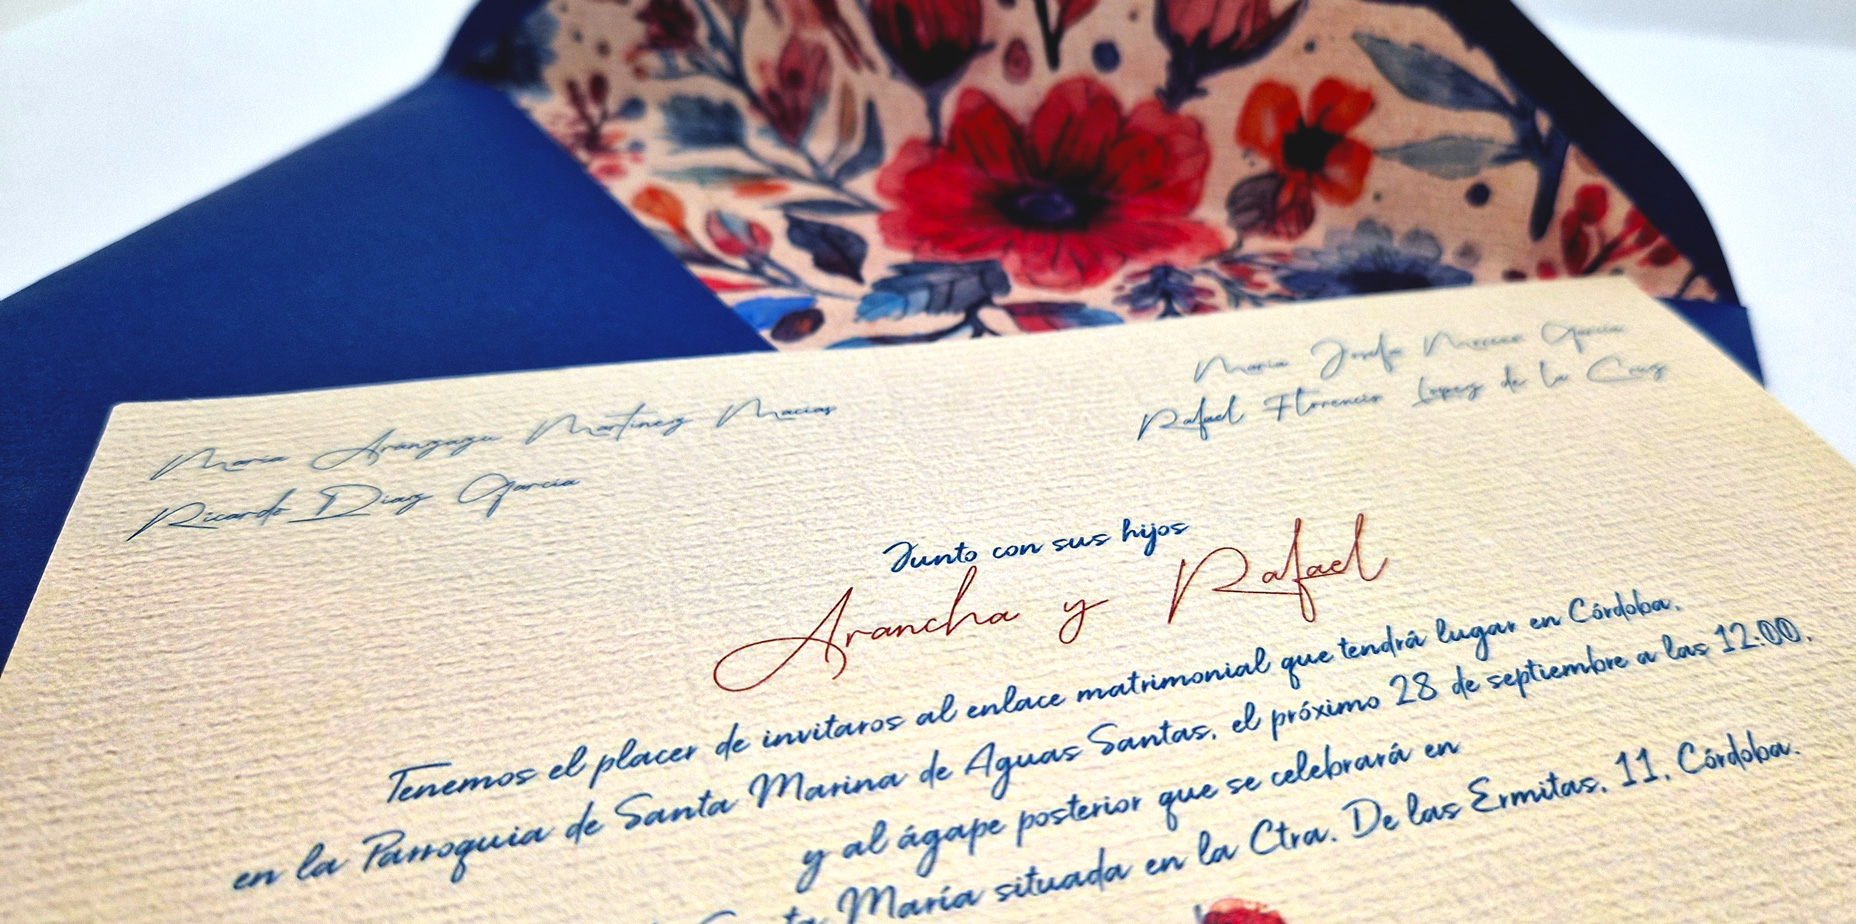 Maria Aranzazu Martinez Macias
Ricardo Diaz Garcia
Maria Josefa Moreno Garcia
Rafael Florencio Lopez de la Cruz
Junto con sus hijos
Arancha y Rafael
Tenemos el placer de invitaros al enlace matrimonial que tendrá lugar en Córdoba,
en la Parroquia de Santa Marina de Aguas Santas, el próximo 28 de septiembre a las 12:00,
y al ágape posterior que se celebrará en
Santa María situada en la Ctra. De las Ermitas, 11, Córdoba.